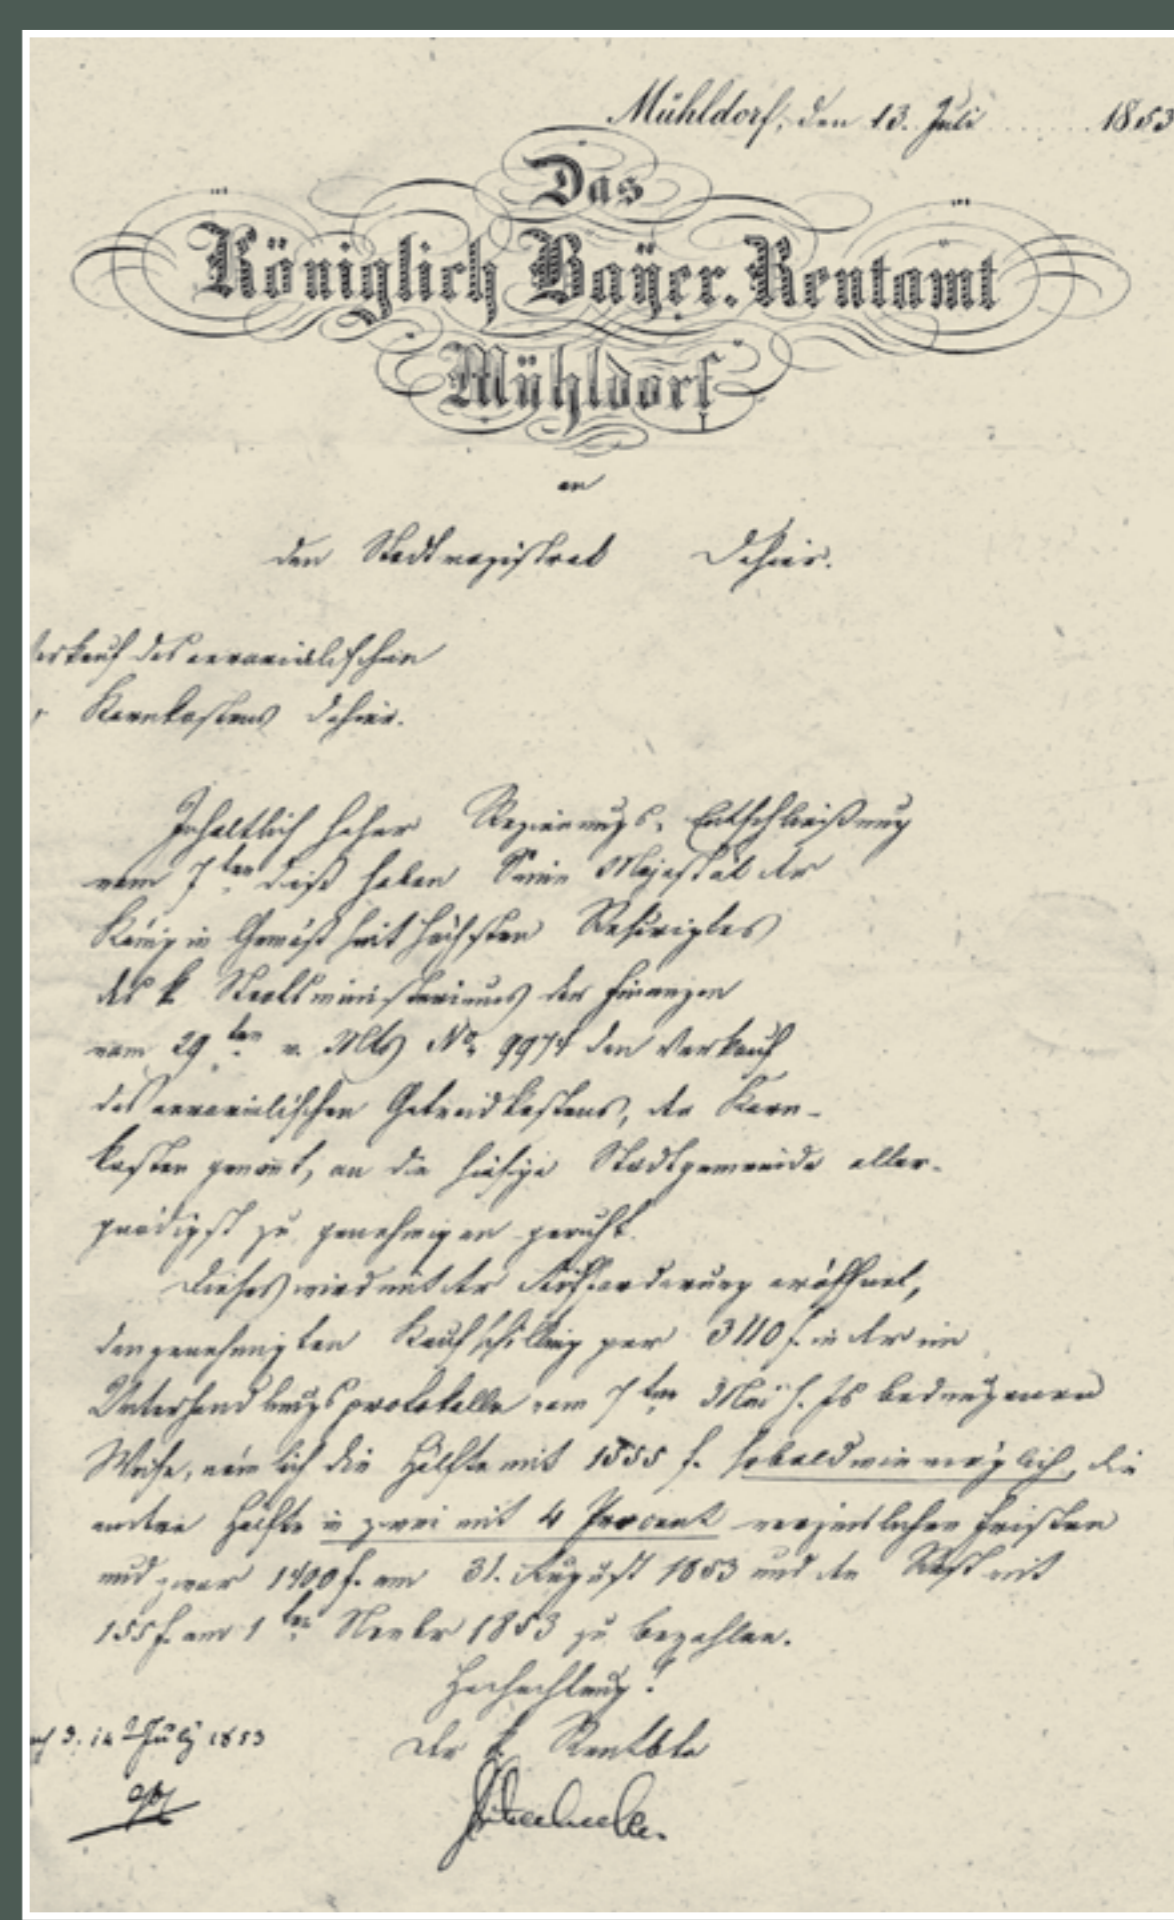 Mühldorf, den 13. Juli 1853
Das
Königlich Bayer. Rentamt
Mühldorf
an
den Stadtmagistrat Dahier.
Verkauf des aerarialischen
Kornkastens dahier.
Inhaltlich hoher Regierungs-Entschließung
vom 7ten dieß haben Seine Majestät der
König in Gemäßheit höchsten Rescriptes
des k. Staatsministeriums der Finanzen
vom 29ten v. Mts No. 9974 den Verkauf
des aerarialischen Getreidkastens, der Korn-
kasten genannt, an die hiesige Stadtgemeinde aller-
gnädigst zu genehmigen geruht.
Dieses wird mit der Aufforderung eröffnet,
den genehmigten Kaufschilling per 3110 f. in der im
Unterhandlungsprotokolle vom 7ten Mai h. Js bedungenen
Weise, nämlich die Hälfte mit 1555 f. sobald wie möglich, die
andere Hälfte in zwei mit 4 Procent verzinslichen Fristen
und zwar 1400 f. am 31. August 1853 und den Rest mit
155 f. am 1ten Novbr 1853 zu bezahlen.
Hochachtung!
Der k. Rentbte
14 July 1853